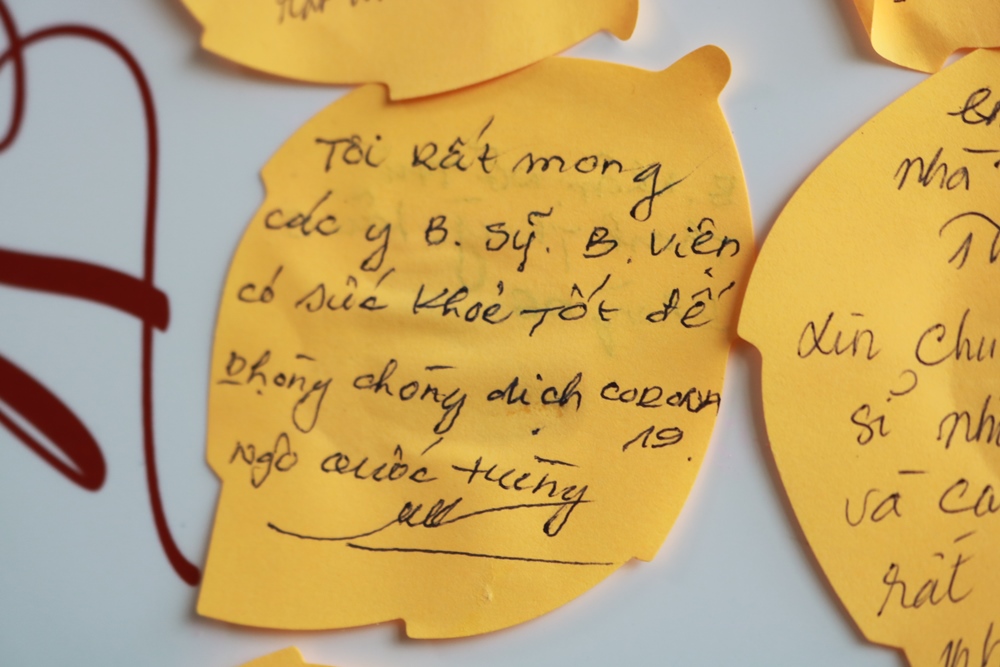 Tôi rất mong
các y B. Sỹ. B. Viên
có sức khoẻ tốt để
phòng chống dịch corona
19.
Ngô Quốc Hùng
en
nhà
xin chu
sỉ nh
và ca
rất